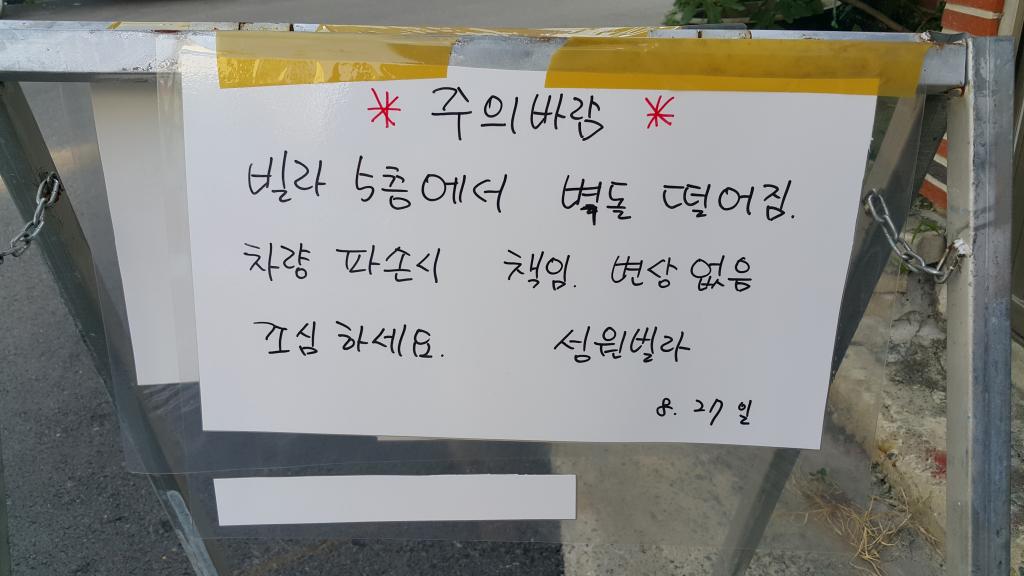 * 주의바람 *
빌라 5층에서 벽돌 떨어짐.
차량 파손시 책임. 변상 없음
조심 하세요. 성원빌라
8. 27 일